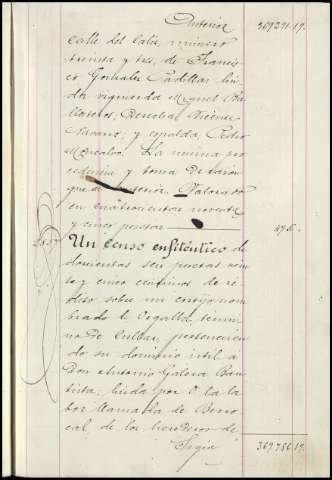 Anterior 369291.19.
calle del Cañi, número
treinta y tres, de Francis-
co Gonzalez Padilla; lin-
da izquierda Miguel Ba-
llesteros; Derecha, Vicente
Navarro; y espalda, Pedro
Moscaloo. La misma pro-
cedencia y toma de razon
que la anterior. Valorado
en cuatrocientas noventa
y cinco pesetas 495.
Un censo enfitéutico de
doscientas seis pesetas vein-
te y cinco céntimos de
rédito sobre un cortijo nom-
brado de Segalla, térmi-
no de Cullar, pertenecien-
do su dominio útil a
Don Antonio Galera Bau-
tista; linda por O. la la-
bor llamada de Berro-
cal, de los herederos de
Sigue 369.786.19.